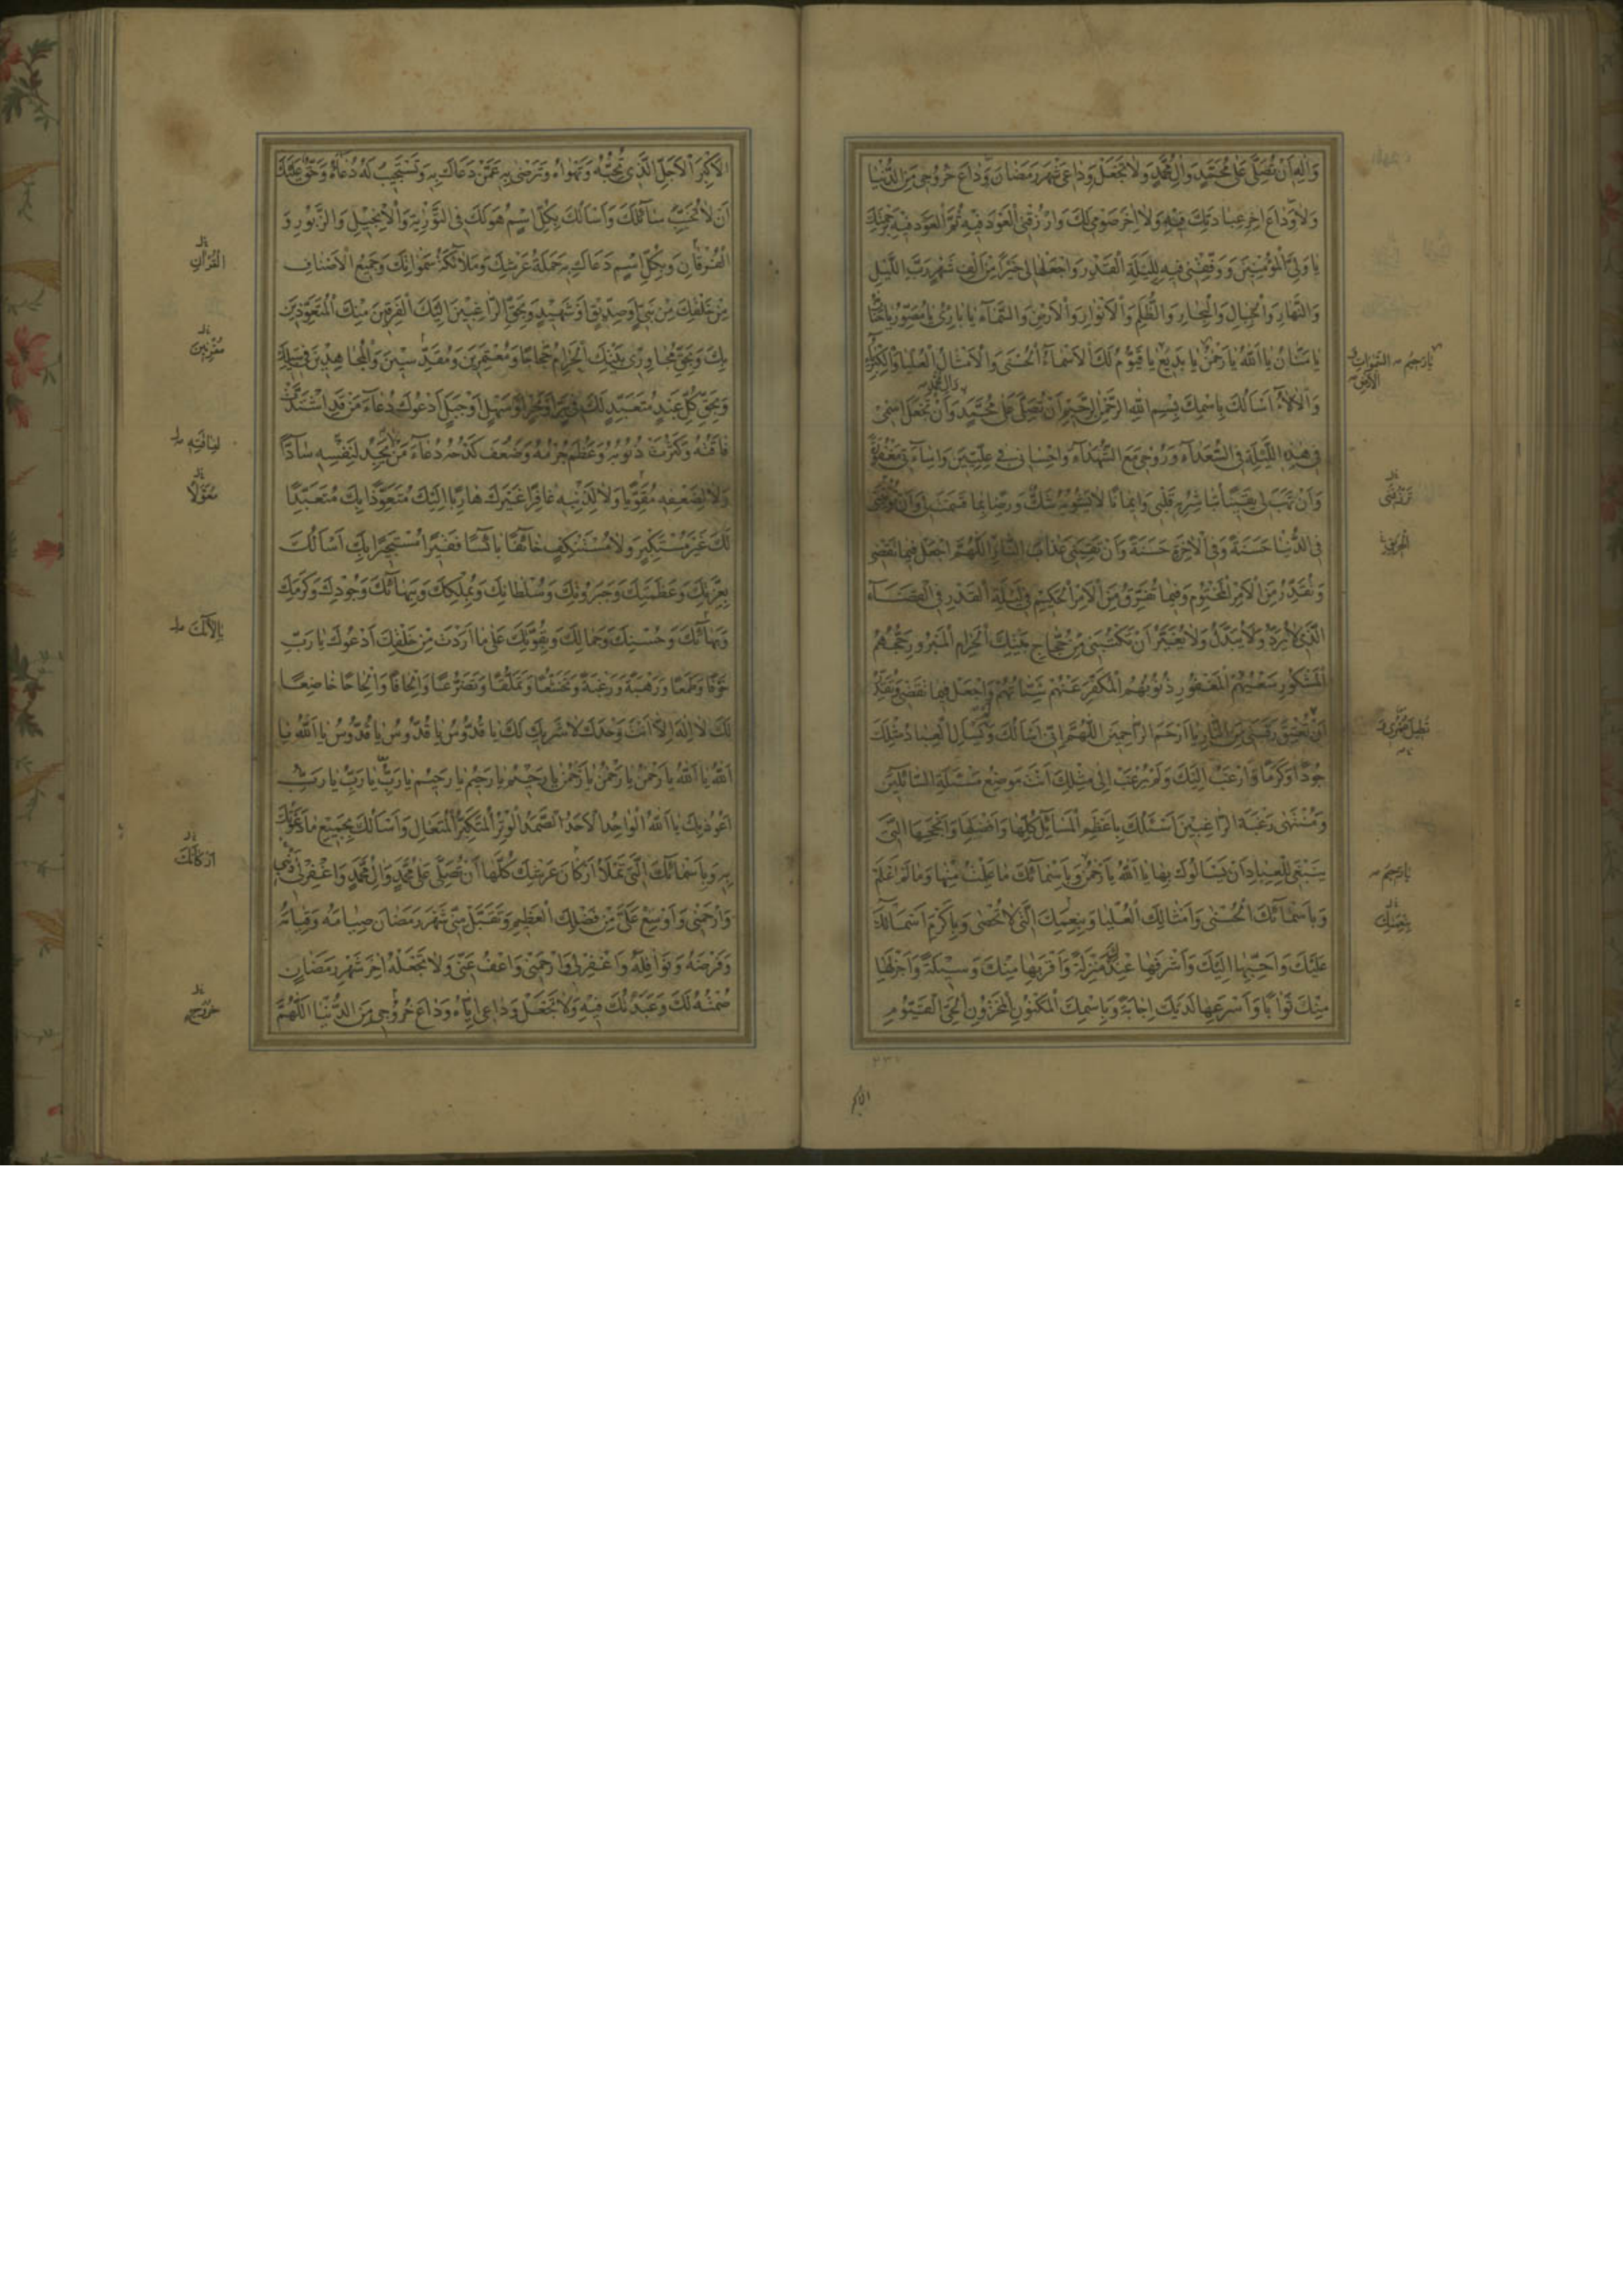 وَآلِهِ اَنْ تُصَلِّىَ عَلىٰ مُحَمَّدٍ وَآلِ مُحَمَّدٍ وَلاٰ تَجْعَلْ وَدٰاعى شَهْرَ رَمَضٰانَ وَدٰاعَ خُرُوجى مِنَ الدُّنْيٰا
وَلاٰ وَدٰاعَ اٰخِرِ عِبٰادَتِكَ فيهِ وَلاٰ اٰخِرَ صَوْمى لَكَ وَارْزُقْنِى الْعَوْدَ فيهِ ثُمَّ الْعَوْدَ فيهِ بِرَحْمَتِكَ
يٰا وَلِىَّ الْمُؤْمِنينَ وَوَفِّقْنى فيهِ لِلَيْلَةِ الْقَدْرِ وَاجْعَلْهٰا لى خَيْرًا مِنْ اَلْفِ شَهْرٍ رَبَّ اللَّيْلِ
وَالنَّهٰارِ وَالْجِبٰالِ وَالْبِحٰارِ وَالظُّلَمِ وَالْاَنْوٰارِ وَالْاَرْضِ وَالسَّمٰآءِ يٰا بٰارِئُ يٰا مُصَوِّرُ يٰا حَنّٰانُ
يٰا مَنّٰانُ يٰا اَللّٰهُ يٰا رَحْمٰنُ يٰا بَديعُ يٰا قَيُّومُ لَكَ الْاَسْمٰآءُ الْحُسْنىٰ وَالْاَمْثٰالُ الْعُلْيٰا وَالْكِبْرِيٰآءُ
يٰا رَحيمُ
السَّمٰوٰاتِ
الْاَرْضِ
وَالْاٰلاٰءُ اَسْاَلُكَ بِاسْمِكَ بِسْمِ اللّٰهِ الرَّحْمٰنِ الرَّحيمِ اَنْ تُصَلِّىَ عَلىٰ مُحَمَّدٍ وَآلِ مُحَمَّدٍ وَاَنْ تَجْعَلَ اسْمى
فى هٰذِهِ اللَّيْلَةِ فِى السُّعَدٰآءِ وَرُوحى مَعَ الشُّهَدٰآءِ وَاِحْسٰانى فى عِلِّيّينَ وَاِسٰآءَتى مَغْفُورَةً
وَاَنْ تَهَبَ لى يَقينًا تُبٰاشِرُ بِهِ قَلْبى وَايمٰانًا لاٰ يَشُوبُهُ شَكٌّ وَرِضًا بِمٰا قَسَمْتَ لى وَاَنْ تُؤْتِيَنى
فِى الدُّنْيٰا حَسَنَةً وَفِى الْاٰخِرَةِ حَسَنَةً وَاَنْ تَقِيَنى عَذٰابَ النّٰارِ اَللّٰهُمَّ اجْعَلْ فيمٰا تَقْضى
وَتُقَدِّرُ مِنَ الْاَمْرِ الْمَحْتُومِ وَفيمٰا تَفْرُقُ مِنَ الْاَمْرِ الْحَكيمِ فى لَيْلَةِ الْقَدْرِ فِى الْقَضٰآءِ
الَّذى لاٰ يُرَدُّ وَلاٰ يُبَدَّلُ وَلاٰ يُغَيَّرُ اَنْ تَكْتُبَنى مِنْ حُجّٰاجِ بَيْتِكَ الْحَرٰامِ الْمَبْرُورِ حَجُّهُمْ
الْمَشْكُورِ سَعْيُهُمْ الْمَغْفُورِ ذُنُوبُهُمْ الْمُكَفَّرِ عَنْهُمْ سَيِّئٰاتُهُمْ وَاجْعَلْ فيمٰا تَقْضى وَتُقَدِّرُ
اَنْ تُعْتِقَ رَقَبَتى مِنَ النّٰارِ يٰا اَرْحَمَ الرّٰاحِمينَ اَللّٰهُمَّ اِنّى اَسْاَلُكَ وَلَمْ يَسْاَلِ الْعِبٰادُ مِثْلَكَ
جُودًا وَكَرَمًا وَاَرْغَبُ اِلَيْكَ وَلَمْ يُرْغَبْ اِلىٰ مِثْلِكَ اَنْتَ مَوْضِعُ مَسْئَلَةِ السّٰآئِلينَ
وَمُنْتَهىٰ رَغْبَةِ الرّٰاغِبينَ اَسْئَلُكَ بِاَعْظَمِ الْمَسٰآئِلِ كُلِّهٰا وَاَفْضَلِهٰا وَاَنْجَحِهَا الَّتى
يَنْبَغى لِلْعِبٰادِ اَنْ يَسْاَلُوكَ بِهٰا يٰا اَللّٰهُ يٰا رَحْمٰنُ وَبِاَسْمٰآئِكَ مٰا عَلِمْتُ مِنْهٰا وَمٰا لَمْ اَعْلَمْ
يٰا رَحيمُ
وَبِاَسْمٰآئِكَ الْحُسْنىٰ وَاَمْثٰالِكَ الْعُلْيٰا وَبِنِعَمِكَ الَّتى لاٰ تُحْصىٰ وَبِاَكْرَمِ اَسْمٰآئِكَ
بِنِعْمَتِكَ
عَلَيْكَ وَاَحَبِّهٰا اِلَيْكَ وَاَشْرَفِهٰا عِنْدَكَ مَنْزِلَةً وَاَقْرَبِهٰا مِنْكَ وَسيلَةً وَاَجْزَلِهٰا
مِنْكَ ثَوٰابًا وَاَسْرَعِهٰا لَدَيْكَ اِجٰابَةً وَبِاسْمِكَ الْمَكْنُونِ الْمَخْزُونِ الْحَىِّ الْقَيُّومِ
الاكبر
الْاَكْبَرِ الْاَجَلِّ الَّذى تُحِبُّهُ وَتَهْوٰاهُ وَتَرْضىٰ بِهِ عَمَّنْ دَعٰاكَ بِهِ وَتَسْتَجيبُ لَهُ دُعٰآءَهُ وَحَقٌّ عَلَيْكَ
اَنْ لاٰ تُخَيِّبَ سٰآئِلَكَ وَاَسْاَلُكَ بِكُلِّ اسْمٍ هُوَ لَكَ فِى التَّوْرٰيةِ وَالْاِنْجيلِ وَالزَّبُورِ وَ
الْفُرْقٰانِ وَبِكُلِّ اسْمٍ دَعٰاكَ بِهِ حَمَلَةُ عَرْشِكَ وَمَلاٰئِكَةُ سَمٰوٰاتِكَ وَجَميعُ الْاَصْنٰافِ
الْقُرْاٰنِ
مِنْ خَلْقِكَ مِنْ نَبِىٍّ اَوْ صِدّيقٍ اَوْ شَهيدٍ وَبِحَقِّ الرّٰاغِبينَ اِلَيْكَ الْفَرِقينَ مِنْكَ الْمُتَعَوِّذينَ
بِكَ وَبِحَقِّ مُجٰاوِرى بَيْتِكَ الْحَرٰامِ حُجّٰاجًا وَمُعْتَمِرينَ وَمُقَدِّسينَ وَالْمُجٰاهِدينَ فى سَبيلِكَ
وَبِحَقِّ كُلِّ عَبْدٍ مُتَعَبِّدٍ لَكَ فى بَرٍّ اَوْ بَحْرٍ اَوْ سَهْلٍ اَوْ جَبَلٍ اَدْعُوكَ دُعٰآءَ مَنْ قَدِ اشْتَدَّتْ
فٰاقَتُهُ وَكَثُرَتْ ذُنُوبُهُ وَعَظُمَ جُرْمُهُ وَضَعُفَ كَدْحُهُ دُعٰآءَ مَنْ لاٰ يَجِدُ لِنَفْسِهِ سٰآدًّا
لِفٰاقَتِهِ
وَلاٰ لِضَعْفِهِ مُقَوِّيًا وَلاٰ لِذَنْبِهِ غٰافِرًا غَيْرَكَ هٰارِبًا اِلَيْكَ مُتَعَوِّذًا بِكَ مُتَعَبِّدًا
لَكَ غَيْرَ مُسْتَكْبِرٍ وَلاٰ مُسْتَنْكِفٍ خٰآئِفًا بٰآئِسًا فَقيرًا مُسْتَجيرًا بِكَ اَسْاَلُكَ
بِعِزَّتِكَ وَعَظَمَتِكَ وَجَبَرُوتِكَ وَسُلْطٰانِكَ وَبِمُلْكِكَ وَبِبَهٰآئِكَ وَجُودِكَ وَكَرَمِكَ
وَبِهٰآئِكَ وَحُسْنِكَ وَجَمٰالِكَ وَبِقُوَّتِكَ عَلىٰ مٰا اَرَدْتَ مِنْ خَلْقِكَ اَدْعُوكَ يٰا رَبِّ
بِاٰلاٰئِكَ
خَوْفًا وَطَمَعًا وَرَهْبَةً وَرَغْبَةً وَتَخَشُّعًا وَتَمَلُّقًا وَتَضَرُّعًا وَاِلْحٰافًا وَاِلْحٰاحًا خٰاضِعًا
لَكَ لاٰ اِلٰهَ اِلاّٰ اَنْتَ وَحْدَكَ لاٰ شَريكَ لَكَ يٰا قُدُّوسُ يٰا قُدُّوسُ يٰا قُدُّوسُ يٰا اَللّٰهُ يٰا
اَللّٰهُ يٰا اَللّٰهُ يٰا رَحْمٰنُ يٰا رَحْمٰنُ يٰا رَحْمٰنُ يٰا رَحيمُ يٰا رَحيمُ يٰا رَحيمُ يٰا رَبِّ يٰا رَبِّ يٰا رَبِّ
اَعُوذُ بِكَ يٰا اَللّٰهُ الْوٰاحِدُ الْاَحَدُ الصَّمَدُ الْوِتْرُ الْمُتَكَبِّرُ الْمُتَعٰالِ وَاَسْاَلُكَ بِجَميعِ مٰا دَعَوْتُكَ
بِهِ وَبِاَسْمٰآئِكَ الَّتى تَمْلَاُ اَرْكٰانَ عَرْشِكَ كُلَّهٰا اَنْ تُصَلِّىَ عَلىٰ مُحَمَّدٍ وَآلِ مُحَمَّدٍ وَاغْفِرْ لى ذَنْبى
اَرْكٰانَكَ
وَارْحَمْنى وَاَوْسِعْ عَلَىَّ مِنْ فَضْلِكَ الْعَظيمِ وَتَقَبَّلْ مِنّى شَهْرَ رَمَضٰانَ صِيٰامَهُ وَقِيٰامَهُ
وَفَرْضَهُ وَنَوٰافِلَهُ وَاغْفِرْ لى وَارْحَمْنى وَاعْفُ عَنّى وَلاٰ تَجْعَلْهُ اٰخِرَ شَهْرِ رَمَضٰانَ
صُمْتُهُ لَكَ وَعَبَدْتُكَ فيهِ وَلاٰ تَجْعَلْ وَدٰاعى اِيّٰاهُ وَدٰاعَ خُرُوجى مِنَ الدُّنْيٰا اَللّٰهُمَّ